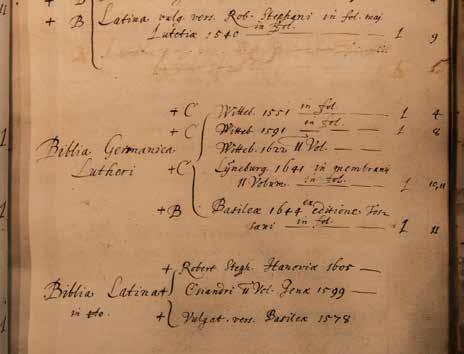 + B
+ B Latina vulg. vers. Rob. Stephani in fol. maj
Lutetiæ 1540 in fol. 1 9
+ C Witteb. 1551 in fol. 1 4
+ C Witteb. 1591 in fol. 1 8
Biblia Germanica Witteb. 1622 II Vol.
Lutheri + C Lyneburg 1641 in membrana
II Volum. in fol. 1 10,11
+ B Basileæ 1644 ex editione Tos-
sani in fol. 1 11
+ Robert Steph. Hanoviæ 1605
Biblia Latina + Osiandri II Vol. Jenæ 1599
in 4to. + Vulgat. vers. Basileæ 1578